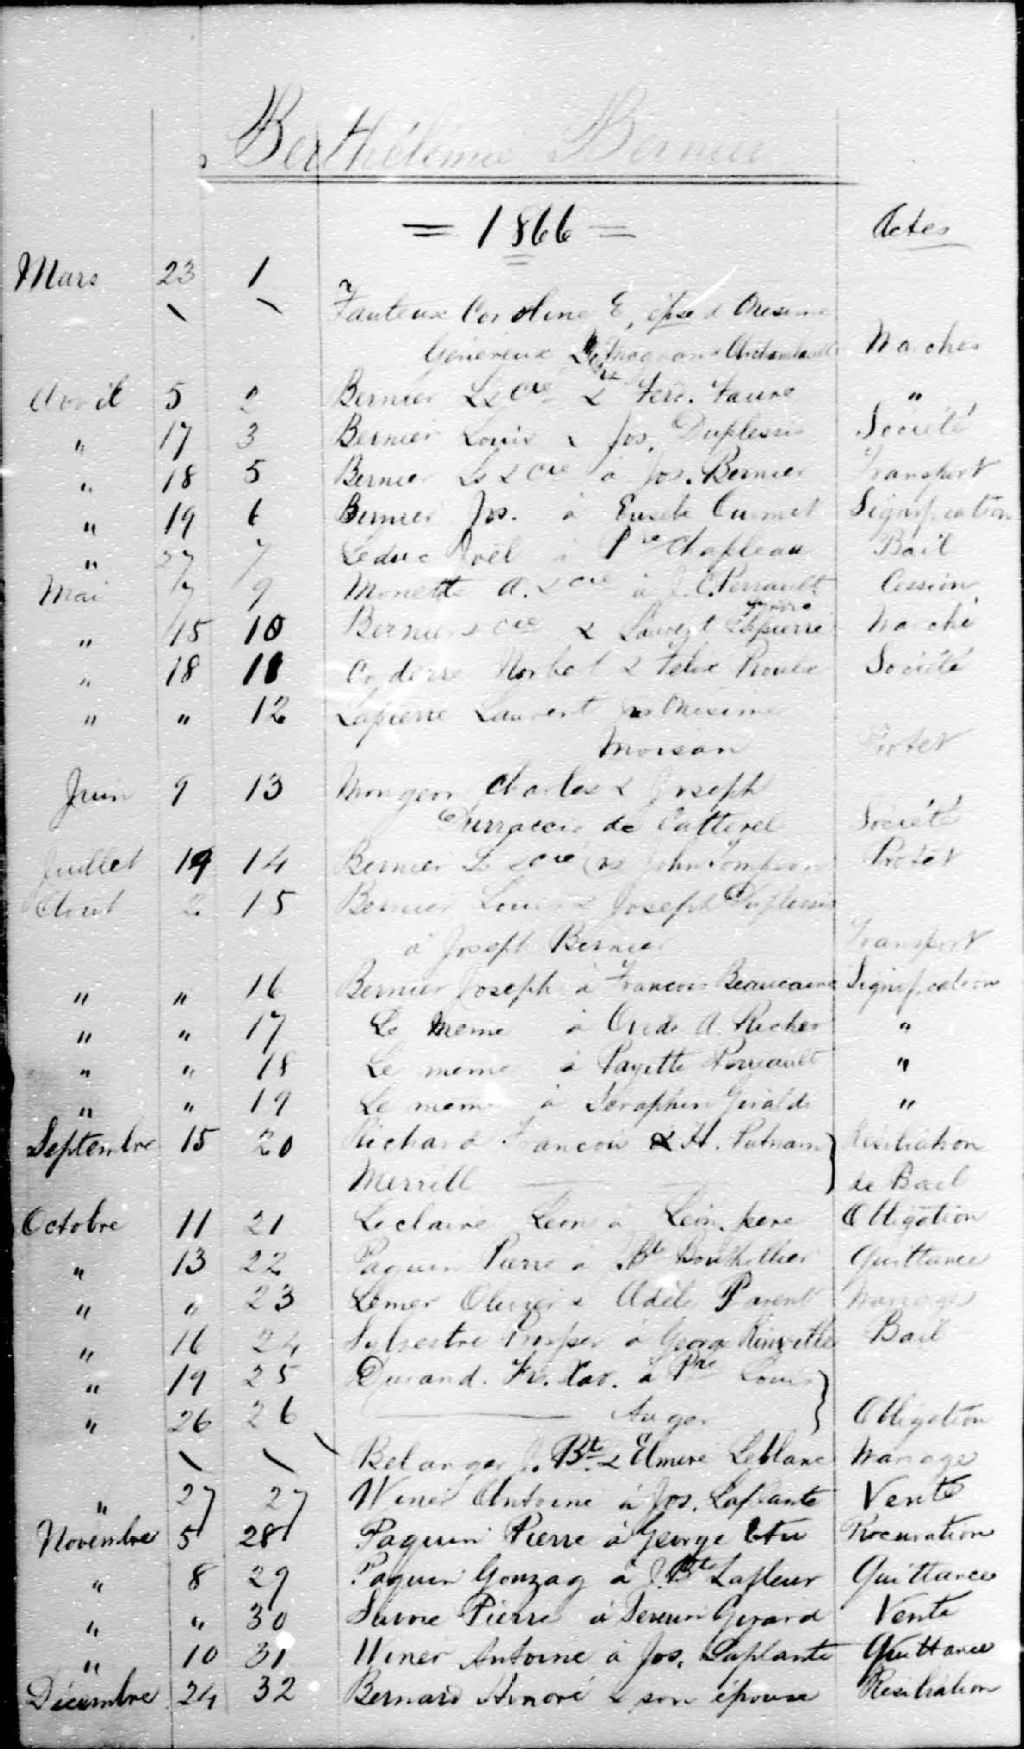 Berthélémie Bernier
= 1866 = Actes
Mars 23 1
Fauteux Caroline E, épse d Onesime
Généreux Archambault Marches
Avril 5 2 Bernier Ls & Cie & Ferd. Faure "
" 17 3 Bernier Louis & Jos. Duplessis Société
" 18 5 Bernier Ls & Cie à Jos. Bernier Transport
" 19 6 Bernier Jos. à Eusèbe Ouimet Signification
" 27 7 Leduc Joël à Pre Chapleau Bail
Mai 7 9 Monette A. & Cie à J. C. Perrault Cession
" 15 10 Bernier & Cie & Laurent Lapierre Marché
" 18 11 Coderre Norbert & Felix Proulx Société
" " 12 Lapierre Laurent vs Onisime
Moisan Protet
Juin 9 13 Mongeon Charles & Joseph
de Société
Juillet 19 14 Bernier Ls & Cie vs John Tompson Protet
Aout 2 15 Bernier Louis & Joseph Duplessis
à Joseph Bernier Transport
" " 16 Bernier Joseph à Francois Beaucaire Signification
" " 17 Le meme à Ovide A. Richer "
" " 18 Le meme à Payette Perreault "
" " 19 Le meme à Seraphin Giraldi "
Septembre 15 20 Richard Francois & H. Putnam Résiliation
Merrill de Bail
Octobre 11 21 Leclaire Léon à Léon, pere Obligation
" 13 22 Paquin Pierre à Bt Bouthillier Quittance
" " 23 Lemer Olivier & Adèle Parent Mariage
" 16 24 Sylvestre Prosper à George Bail
" 19 25 Durand. Fr. Xav. à Pre Louis
" 26 26 Auger Obligation
Belanger J. Bt. & Elmire Leblanc Mariage
" 27 27 Winer Antoine à Jos. Laplante Vente
Novembre 5 28 Paquin Pierre à George Procuration
" 8 29 Paquin Gonzag à J. Bt Lafleur Quittance
" " 30 Savoie Pierre à Gerard Vente
" 10 31 Winer Antoine à Jos. Laplante Quittance
Décembre 24 32 Bernard Honoré & son épouse Résiliation